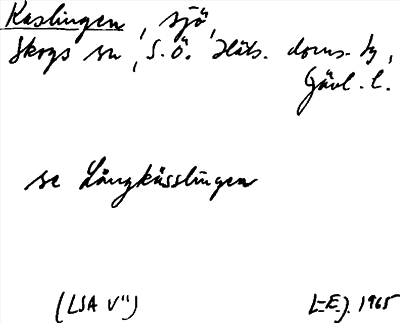 Kaslingen, sjö,
Skogs sn, S.Ö. Häls. doms. by,
Gävl. l.
se Långkässlingen
(LSA V")
L-E-J. 1965